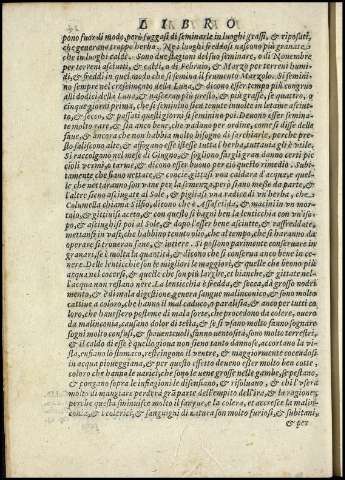 LIBRO
pono fuor di modo, però fuggasi di seminarle in luoghi grassi, & riposati,
che generano troppo herba. Ne i luoghi freddosi nascono più granate,
che in luoghi caldi. Sono due stagioni del suo seminare, o di Novembre
per terreni asciutti, & caldi, o di Febraio, & Marzo per terreni humi-
di, & freddi in quel modo che si semina il frumento Marzolo. Si semini-
no sempre nel crescimento della Luna, & dicono esser tempo più congruo
alli dodici della Luna, & nascono più presto, & più grasse, se quattro, o
cinque giorni prima, che si seminino sieno tenute involte in letame asciut-
to, & secco, & passati quelli giorni si semino poi. Devono esser semina-
te molto rare, & sia anco bene, che vadano per ordine, come si disse delle
fave, & ancora che non habbia molto bisogno di sarchiarle, perche pre-
sto saliscono alte, & affogano esse istesse tutta l'herba, tuttavia gli è utile.
Si raccolgono nel mese di Giugno, & sogliono farsegli un danno certi pic-
cioli vermi, o tarme, & dicono esser buono per ciò questo rimedio. Subi-
tamente che siano nettate, & concie, gittisi una caldara d'acqua, & quel-
le che nettaranno son vane per la semenza, però siano messe da parte, &
l'altre sieno asciugate al Sole, & piglisi una radice di un'herba, che
Columella chiama Silfio, dicono che è Assafetida, & macinisi un mor-
taio, & gittivisi aceto, & con quello si bagni ben la lenticchia con un'iso-
po, & asciughisi poi al Sole, & dopo l'esser bene asciutte, & raffreddate,
mettansi in vasi, che habbino havuto vino, che al tempo, che si haranno da
operare si troveranno sane, & intiere. Si possono parimente conservare in
granari, se è molta la quantità, & dicono che si conserva anco bene in ce-
nere. Delle lenticchie son le migliori le maggiori, & quelle che beveno più
acqua nel cocersi, & quelle che son più larghe, et bianche, & gittate nel-
l'acqua non restano nere. La lenticchia è fredda, & secca, dà grosso nodri-
mento, & è di mala digestione, genera sangue malinconico, & sono molto
cattive a coloro, che hanno il mal caduco, o paralisia, & anco per tutti co
loro, che havessero posteme di mala sorte, che procedono da colere, overo
da malinconia, causano dolor di testa, & se si usano molto fanno sognare
sogni molto confusi, & spaventevoli, fanno ventosità, sono molto terrestri,
& il caldo di esse è quello giova non sieno tanto dannose, accortano la vi-
sta, rifiano lo stomaco, restringono il ventre, & maggiormente cocendosi
in acqua piovegiana, & per questo effetto deveno esser molto ben cotte,
coloro che hanno le varici, che sono le vene grosse nelle gambe, se pestano,
& pongono sopra le infiagioni le disensiano, & risolvano, & chi l'usera
molto di mangiare perderà grã parte dell'empito dell'ira, & la ragione,
perche questa sminuisce molto il sangue, e la colera, et accresce la malin-
conia, & i colerici, & sanguigni di natura son molto furiosi, & subitani,
& per